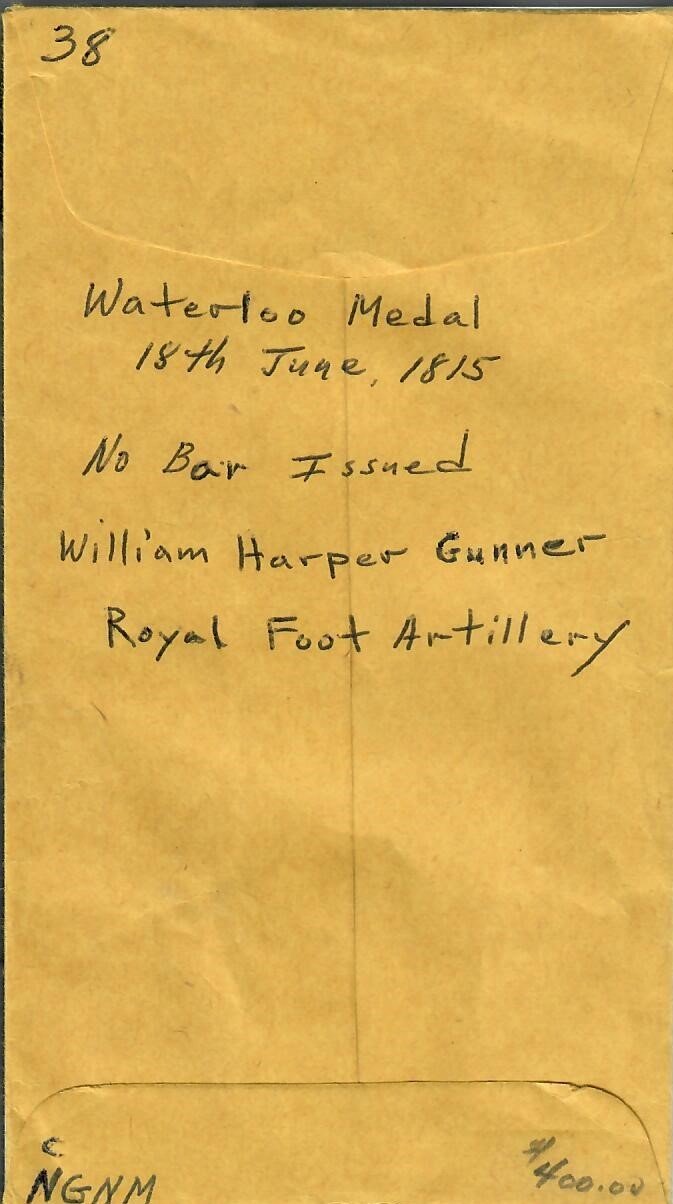 38
Waterloo Medal
18th June, 1815
No Bar Issued
William Harper Gunner
Royal Foot Artillery
C
NGNM
$400.00